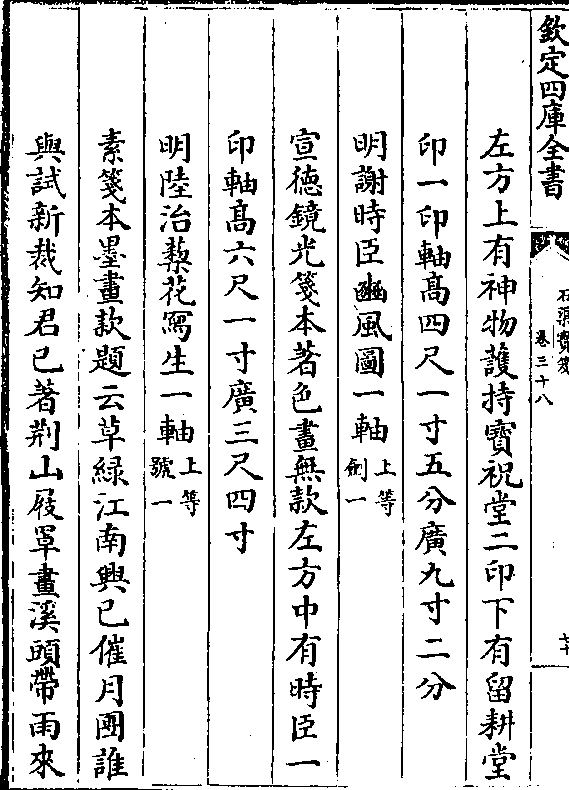 欽定四庫全書
石渠寶笈
卷三十八
左方上有神物護持寶祝堂二印下有留耕堂
印一印軸髙四尺一寸五分廣九寸二分
明謝時臣豳風圖一軸上等劍一
宣徳鏡光箋本著色畫無款左方中有時臣一
印軸髙六尺一寸廣三尺四寸
明陸治蔾花寫生一軸上等號一
素箋本墨畫款題云草緑江南興已催月團誰
與試新裁知君已著荆山屐罩畫溪頭帶雨來